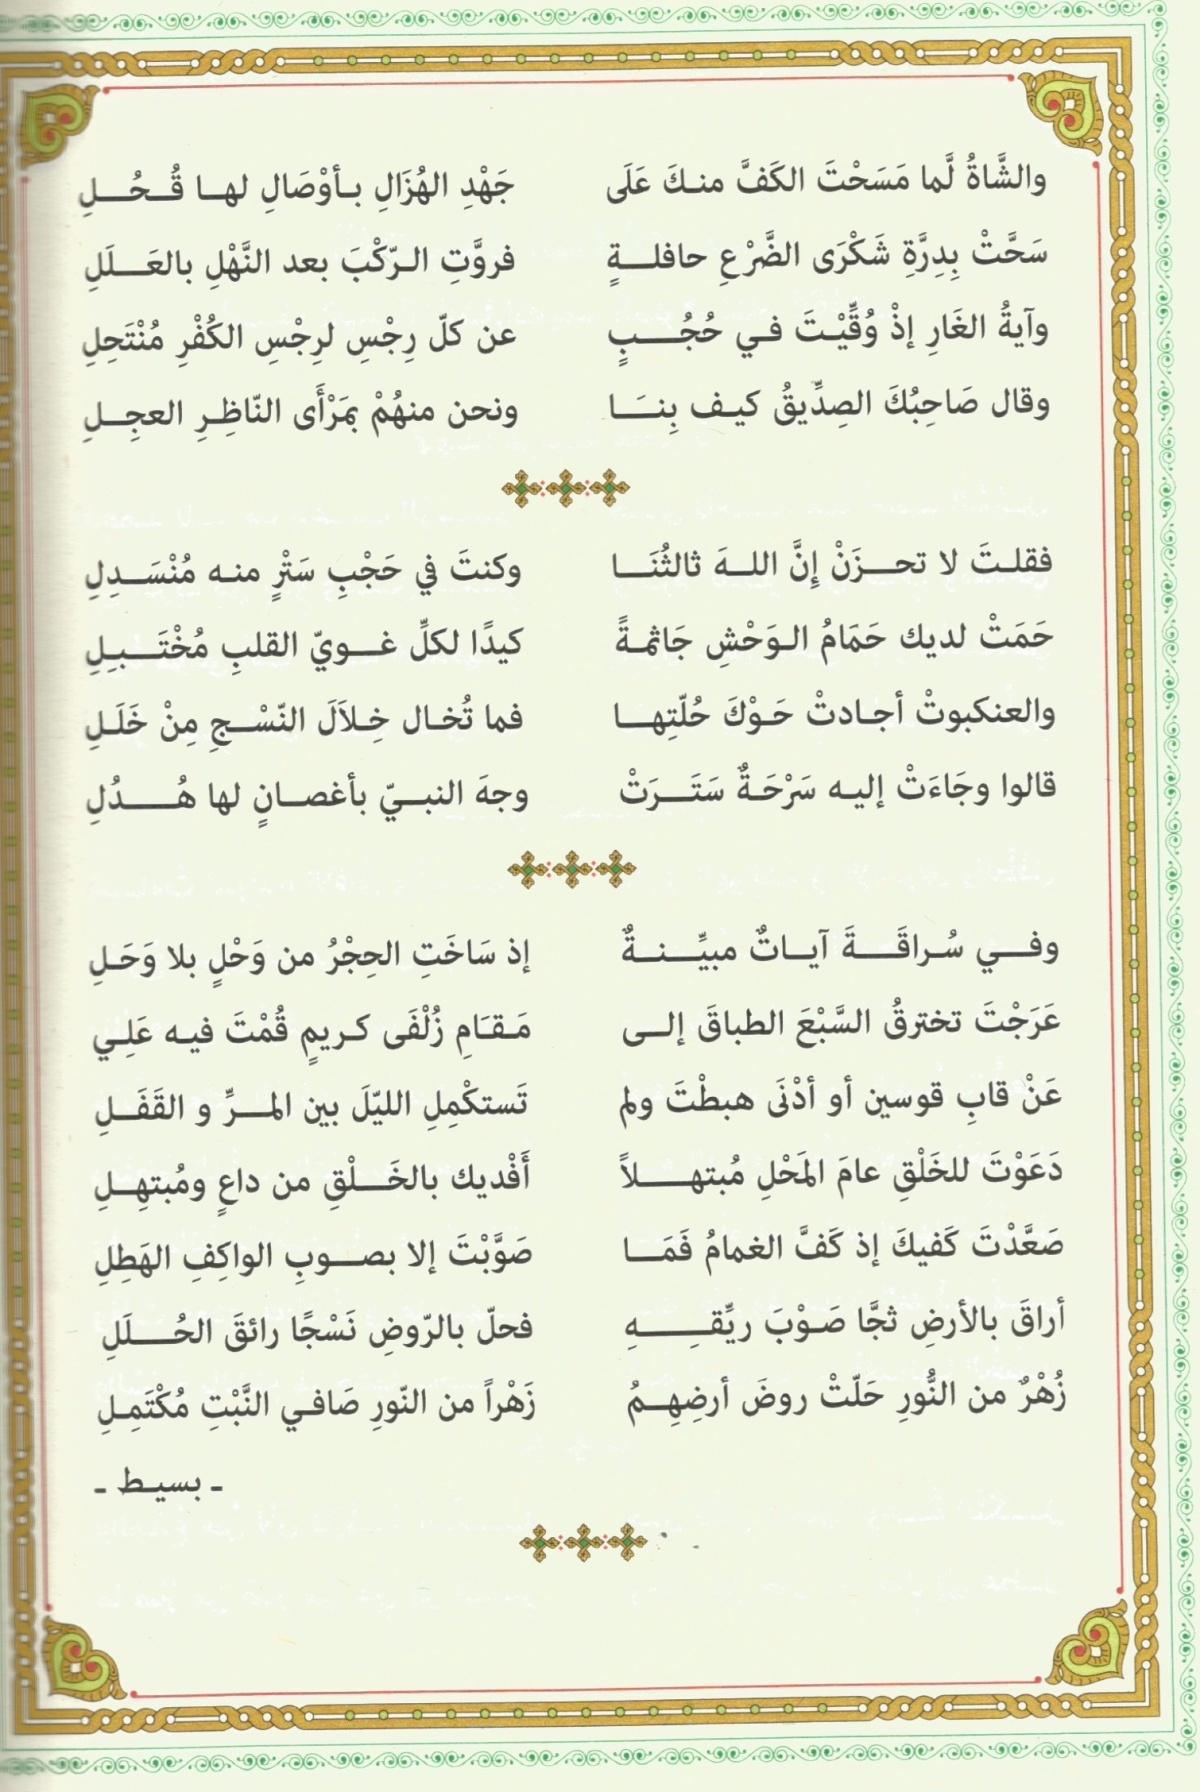 والشَّاةُ لَّما مَسَحْتَ الكَفَّ منكَ عَلَى جَهْدِ الهُزَالِ بأوْصَالِ لها قُحُلِ
سَحَّتْ بِدِرَّةِ شَكْرَى الضَّرْعِ حافلةٍ فروَّتِ الرّكْبَ بعد النَّهْلِ بالعَلَلِ
وآيةُ الغَارِ إذْ وُقِّيْتَ في حُجُبٍ عن كلّ رِجْسِ لرِجْسِ الكُفْرِ مُنْتَحِلِ
وقال صَاحِبُكَ الصِدِّيقُ كيف بِنَا ونحن منهُمْ بمَرْأَى النّاظِرِ العجِلِ
فقلتَ لا تحزَنْ إِنَّ اللهَ ثالثُنَا وكنتَ في حَجْبِ سَتْرٍ منه مُنْسَدِلِ
حَمَتْ لديك حَمَامُ الوَحْشِ جَاثمةً كيدًا لكلِّ غويّ القلبِ مُخْتَبلِ
والعنكبوتْ أجادتْ حَوْكَ حُلّتِها فما تُخال خِلاَلَ النّسْجِ مِنْ خَلَلِ
قالوا وجَاءَتْ إليه سَرْحَةٌ سَتَرَتْ وجهَ النبيّ بأغصانٍ لها هُدُلِ
وفي سُراقَةَ آياتٌ مبيِّنةٌ إذ سَاخَتِ الحِجْرُ من وَحْلٍ بلا وَحَلِ
عَرَجْتَ تخترقُ السَّبْعَ الطباقَ إلى مَقَامِ زُلْفَى كريمٍ قُمْتَ فيه عَلِي
عَنْ قابِ قوسين أو أدْنَى هبطْتَ ولم تَستكْمِلِ الليّلَ بين المرِّ و القَفَلِ
دَعَوْتَ للخَلْقِ عامَ المَحْلِ مُبتهلاً أَفْديك بالخَلْقِ من داعٍ ومُبتهِلِ
صَعَّدْتَ كَفيكَ إذ كَفَّ الغمامُ فَمَا صَوَّبْتَ إلا بصوبِ الواكِفِ الهَطِلِ
أراقَ بالأرضِ ثجَّا صَوْبَ ريِّقهِ فحلّ بالرّوضِ نَسْجًا رائقَ الحُلَلِ
زُهْرٌ من النُّورِ حَلّتْ روضَ أرضِهِمُ زَهْراً من النّورِ صَافي النَّبْتِ مُكْتَمِلِ
ـ بسيط ـ